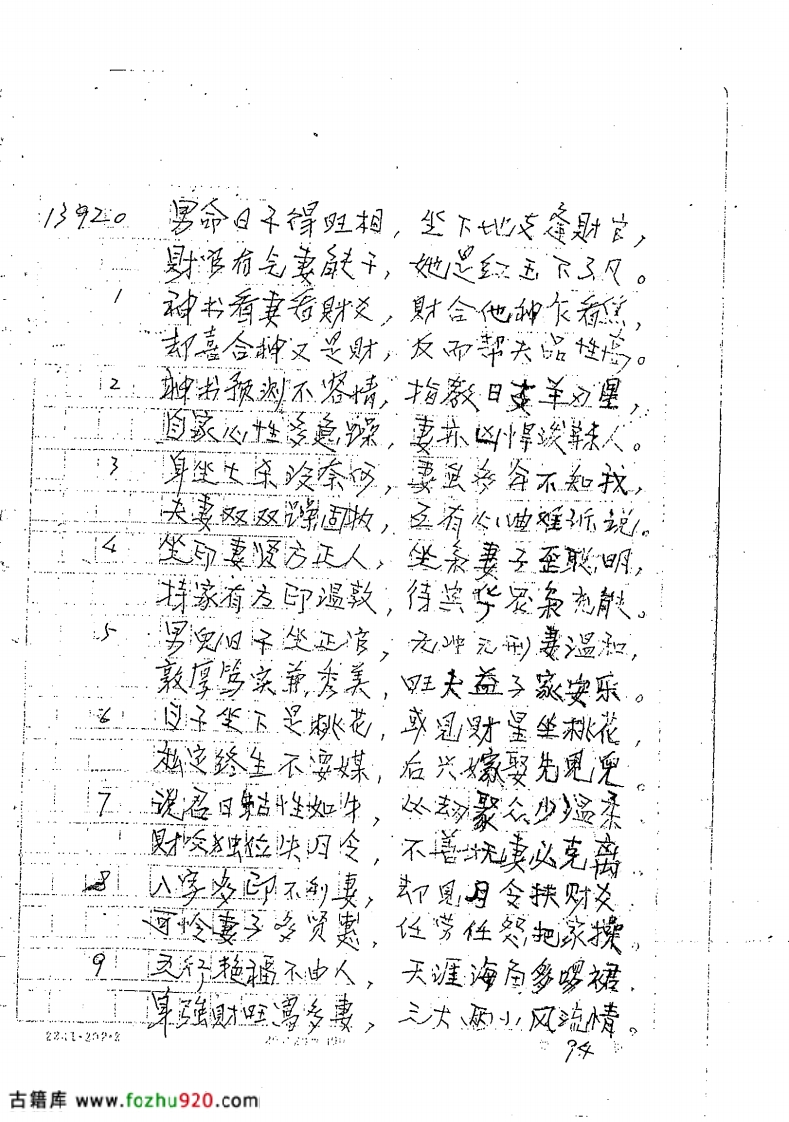 13920 男命日子得旺相，坐下地支逢财官，
财官有气妻能干，她是红玉下了凡。
1 神书看妻看财爻，财合他神乍看焦，
却喜合神又是财，反而帮夫品性高。
2 神书预测不容情，指教日支羊刃星，
自家心性多急躁，妻亦凶悍误人。
3 身坐七杀没奈何，妻虽多年不知我，
夫妻双双躁固执，还有心曲难诉说。
4 坐印妻贤方正人，坐枭妻子歪聪明，
持家有方印温敦，待业华思枭充能。
5 男儿日子坐正官，无冲无刑妻温和，
敦厚笃实兼秀美，旺夫益子家安乐。
6 日子坐下是桃花，或见财星坐桃花，
私定终生不要媒，后兴嫁娶先见儿。
7 说君日性如牛，比劫聚众少温柔，
财爻独位失月令，不善抚妻必克离。
8 八字多印不利妻，却见月令扶财爻
可怜妻子多贤惠，任劳任怨把家操。
9 五行艳福不由人，天涯海角多啰裙.
身强财旺寓多妻，三大两小风流情。
2241·292·2
94
古籍库 www.fozhu920.com